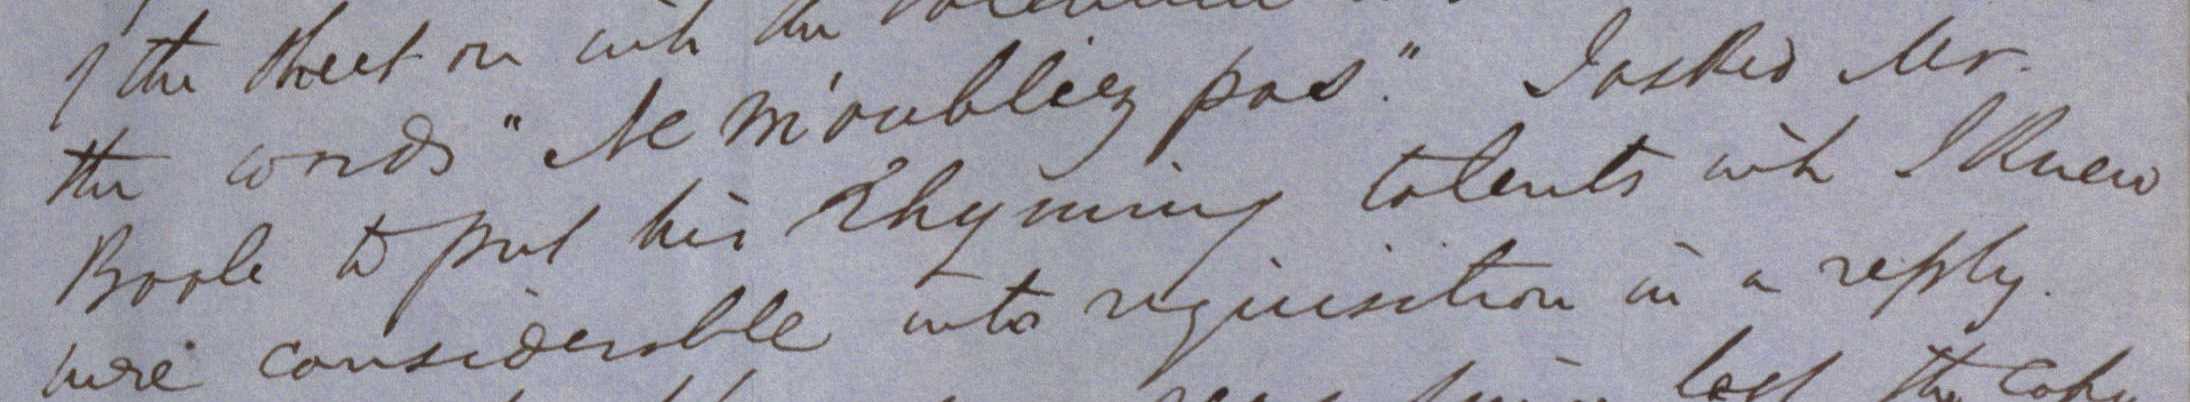 of the sheet on wh the
the words "Ne m'oubliez pas." I asked Mr.
Boole to put his rhyming talents wh I knew
were considerable into requisition in a reply.
lost the copy